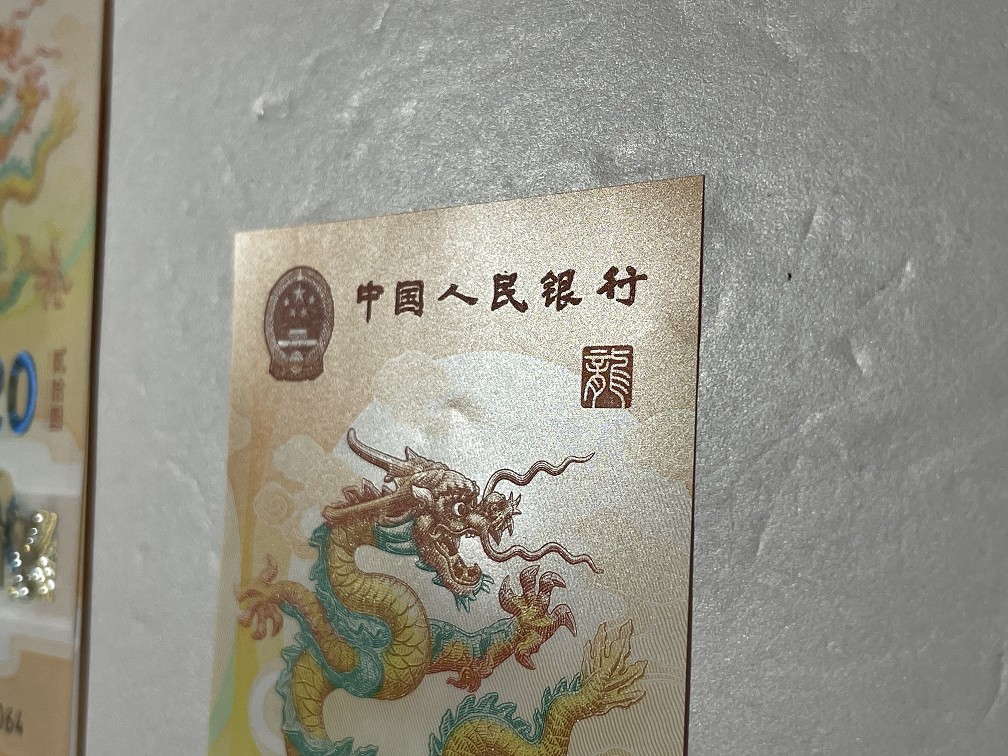 中国人民银行
龍
20
贰拾圆
064